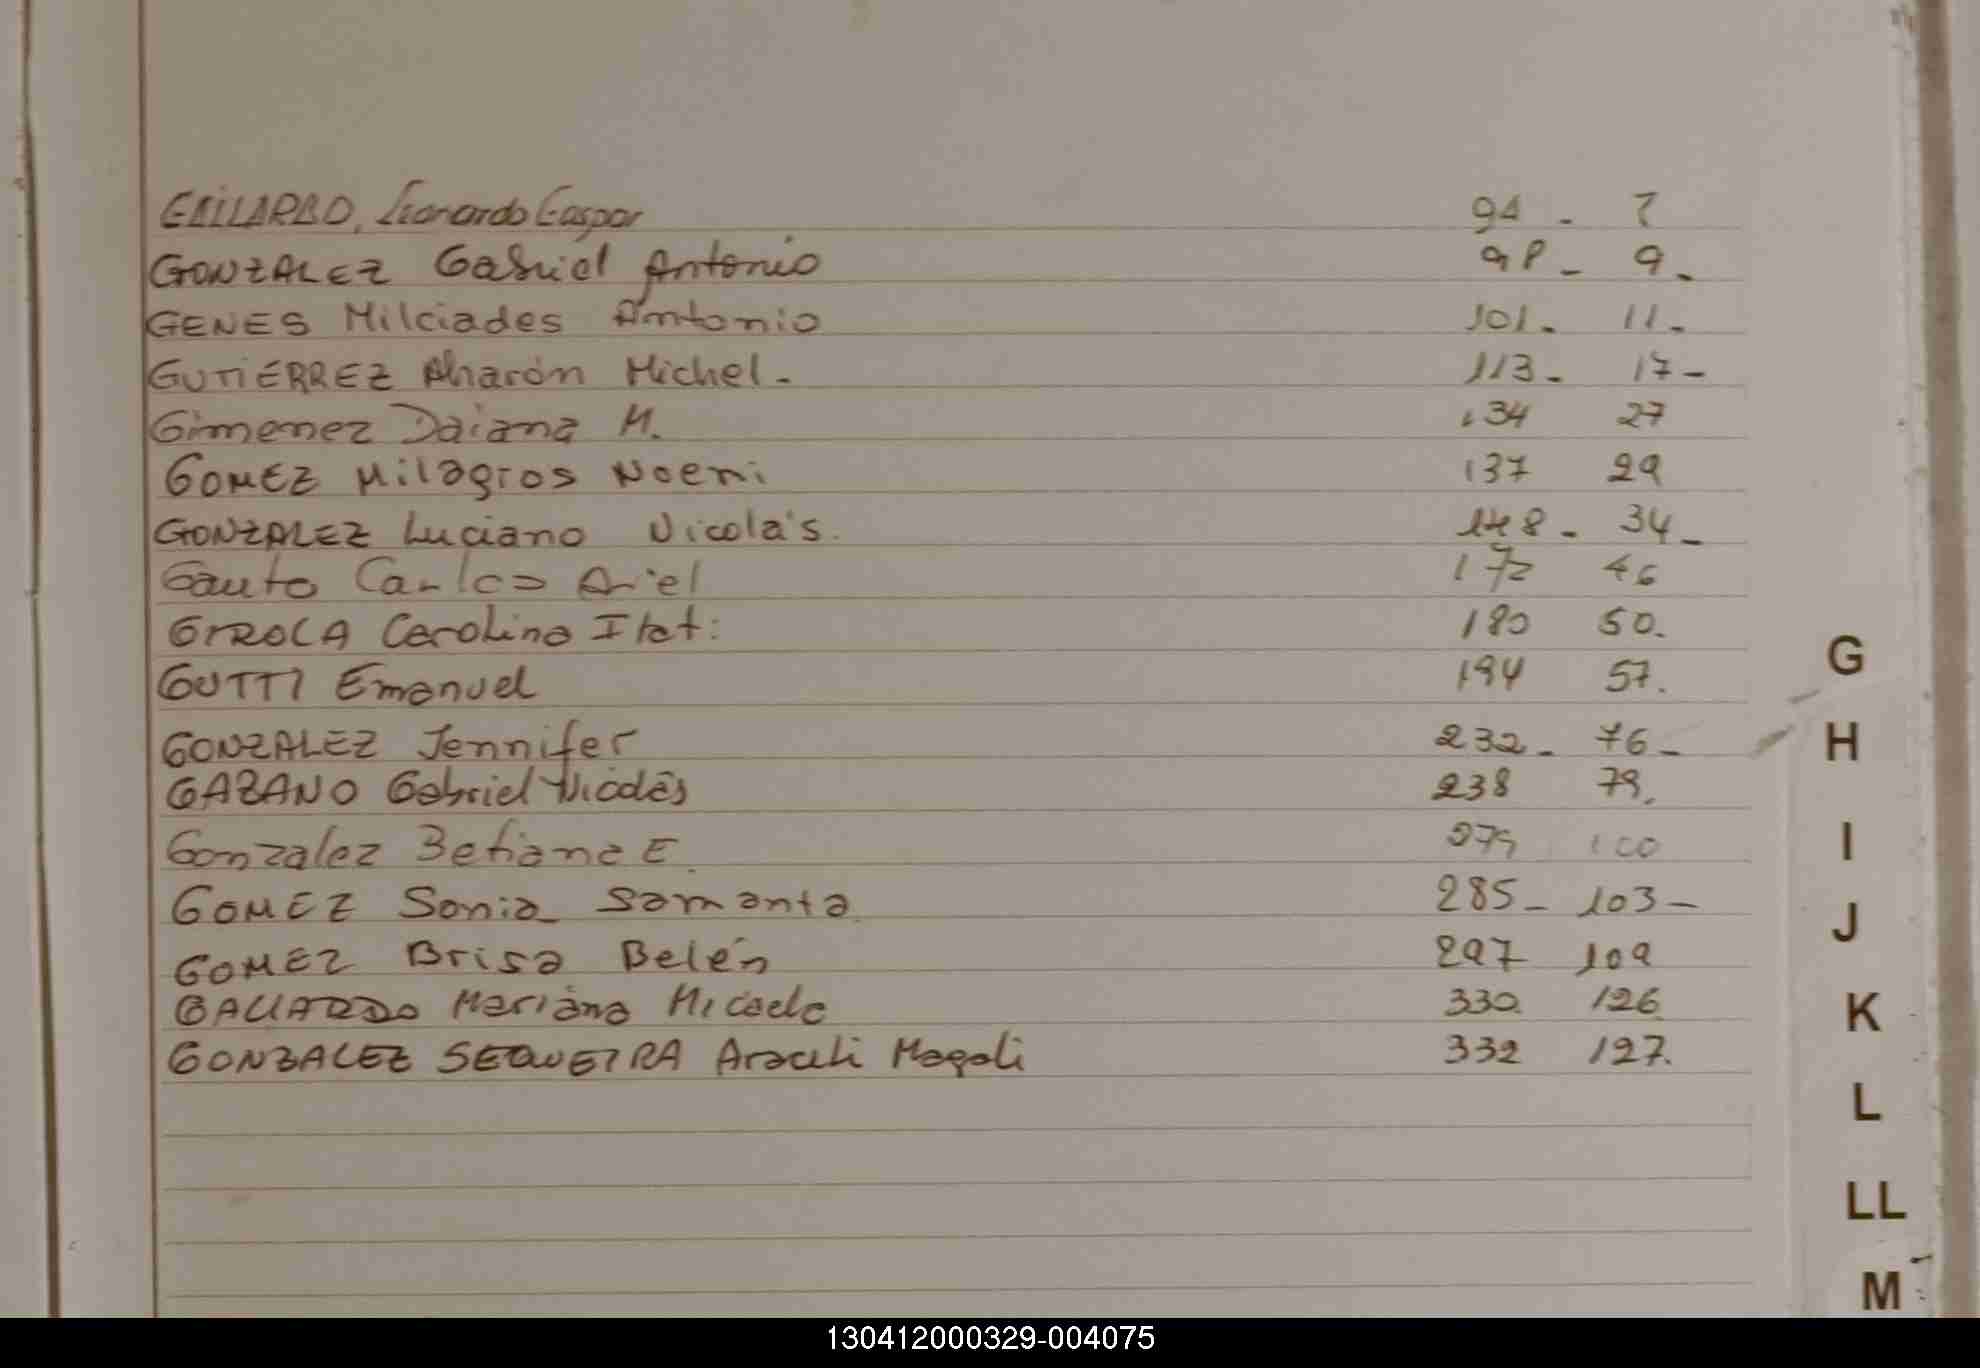 GAILARDO, Leonardo Gaspar 94 - 7
GONZALEZ Gabriel Antonio 98 - 9 -
GENES Milciades Antonio 101 - 11 -
GUTIÉRREZ Aharón Michel - 113 - 17 -
Gimenez Daiana M. 134 27
GOMEZ Milagros Noemi 137 29
GONZALEZ Luciano Nicolás. 148 - 34 -
Gauto Carlos Ariel 172 46
GIROLA Carolina Itati 180 50.
GUTTI Emanuel 194 57.
GONZALEZ Jennifer 232 - 76 -
GAZANO Gabriel Nicolás 238 79.
Gonzalez Betiana E. 279 100
GOMEZ Sonia Samanta 285 - 103 -
GOMEZ Brisa Belén 297 109
GALLARDO Mariana Micaela 330 126
GONZALEZ SEQUEIRA Araceli Magali 332 127.
G
H
I
J
K
L
LL
M
130412000329-004075